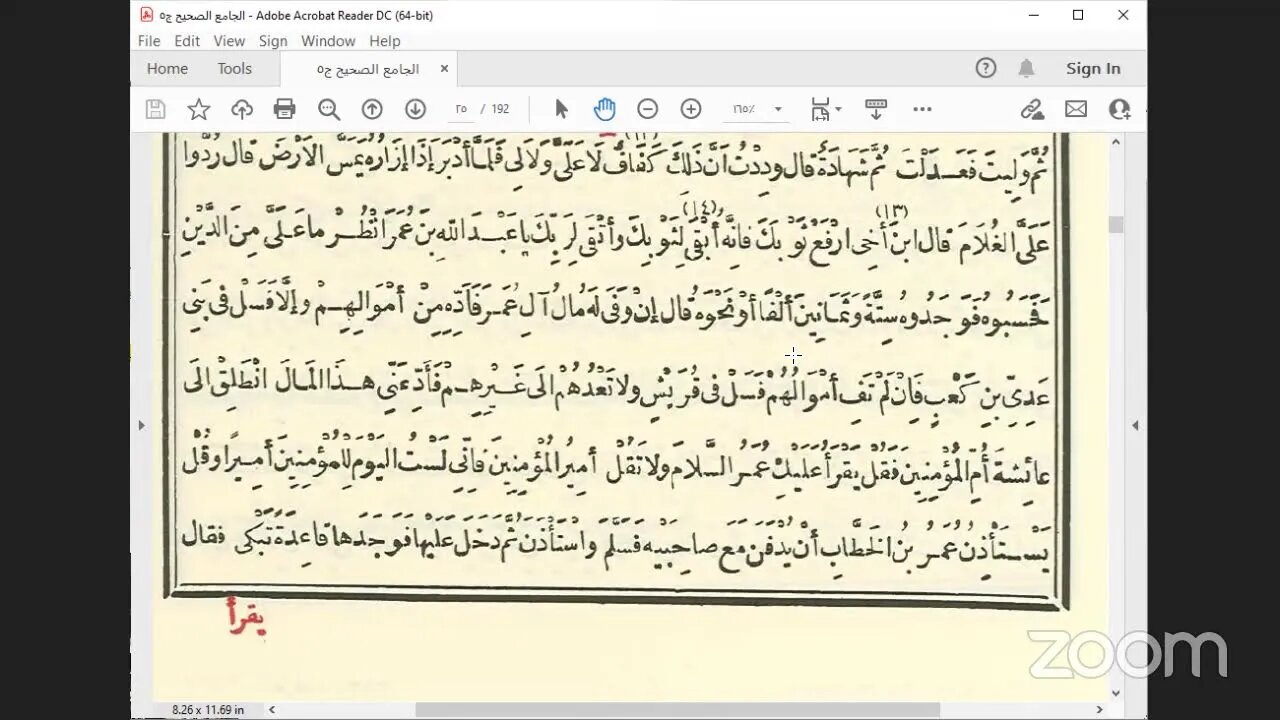 الجامع الصحيح ج٥ - Adobe Acrobat Reader DC (64-bit)
File Edit View Sign Window Help
Home Tools الجامع الصحيح ج٥ Sign In
٢٥ / 192 ١٦٥٪
(١٢)
ثُمَّ وَلِيتَ فَعَدَلْتَ ثُمَّ شَهَادَةٌ قَالَ وَدِدْتُ أَنَّ ذٰلِكَ كَفَافٌ لَا عَلَيَّ وَلَا لِي فَلَمَّا أَدْبَرَ إِذَا إِزَارُهُ يَمَسُّ الْأَرْضَ قَالَ رُدُّوا
(١٣) (١٤)
عَلَيَّ الْغُلَامَ قَالَ ابْنَ أَخِي ارْفَعْ ثَوْبَكَ فَإِنَّهُ أَبْقَى لِثَوْبِكَ وَأَتْقَى لِرَبِّكَ يَا عَبْدَ اللهِ بْنَ عُمَرَ انْظُرْ مَا عَلَيَّ مِنَ الدَّيْنِ
فَحَسَبُوهُ فَوَجَدُوهُ سِتَّةً وَثَمَانِينَ أَلْفًا أَوْ نَحْوَهُ قَالَ إِنْ وَفَى لَهُ مَالُ آلِ عُمَرَ فَأَدِّهِ مِنْ أَمْوَالِهِمْ وَإِلَّا فَسَلْ فِي بَنِي
عَدِيِّ بْنِ كَعْبٍ فَإِنْ لَمْ تَفِ أَمْوَالُهُمْ فَسَلْ فِي قُرَيْشٍ وَلَا تَعْدُهُمْ إِلَى غَيْرِهِمْ فَأَدِّ عَنِّي هٰذَا الْمَالَ انْطَلِقْ إِلَى
عَائِشَةَ أُمِّ الْمُؤْمِنِينَ فَقُلْ يَقْرَأُ عَلَيْكِ عُمَرُ السَّلَامَ وَلَا تَقُلْ أَمِيرُ الْمُؤْمِنِينَ فَإِنِّي لَسْتُ الْيَوْمَ لِلْمُؤْمِنِينَ أَمِيرًا وَقُلْ
يَسْتَأْذِنُ عُمَرُ بْنُ الْخَطَّابِ أَنْ يُدْفَنَ مَعَ صَاحِبَيْهِ فَسَلَّمَ وَاسْتَأْذَنَ ثُمَّ دَخَلَ عَلَيْهَا فَوَجَدَهَا قَاعِدَةً تَبْكِي فَقَالَ
يقرأ
zoom
8.26 x 11.69 in